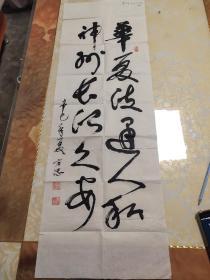 華夏政通人和
神州長治久安
辛巳年夏